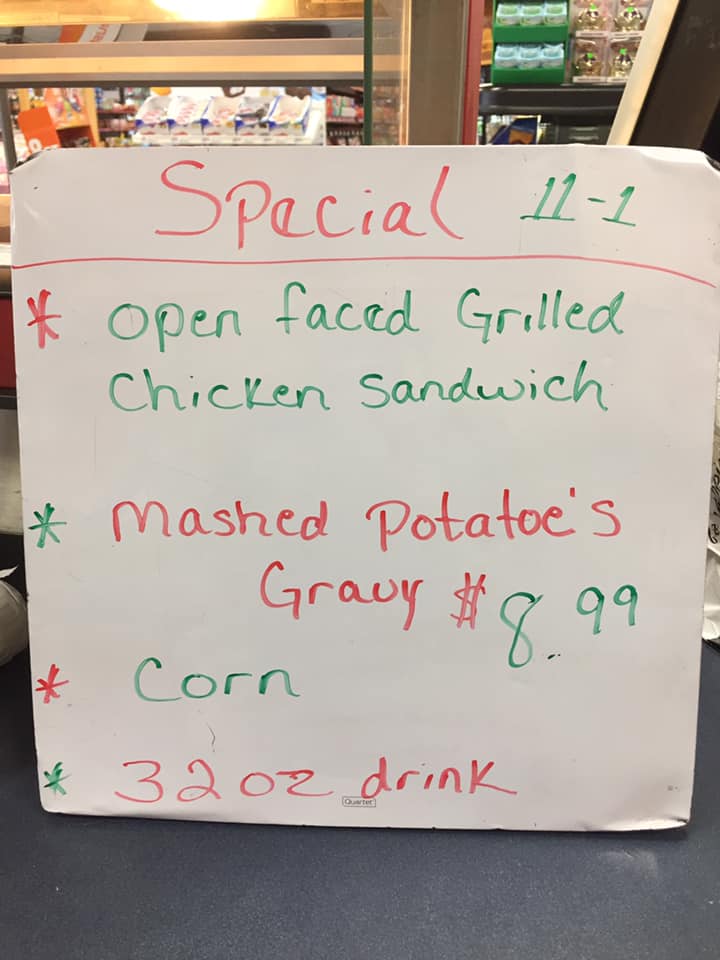 Special 11-1
* Open faced Grilled
Chicken Sandwich
* Mashed Potatoe's
Gravy $8.99
* Corn
* 32 oz drink
Quartet